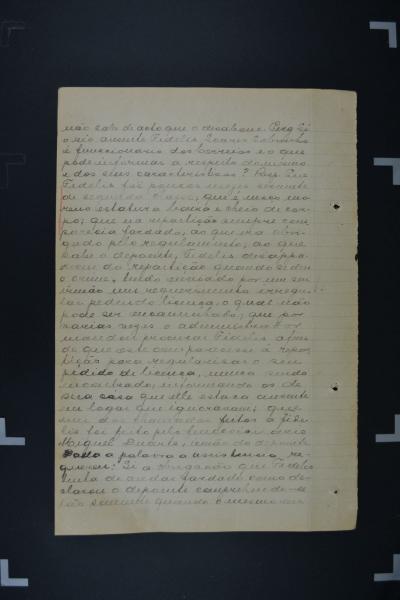 não sabe de acto que o desabone. Perg. Si
o réo ausente Fidelis Soares
é funccionario dos Correios e o que
póde informar a respeito do mesmo
e dos seus caracteristicos? Resp. Que
Fidelis foi poucos mezes servente
de segunda classe; que é moço mo-
reno estatura baixa e cheio de cor-
po; que na repartição sempre com-
parecia fardado, ao que era obri-
gado pelo regulamento; ao que
sabe o depoente, Fidelis desappa-
receu da repartição quando se deu
o crime, tendo enviado por um seu
irmão um requerimento
pedindo licença, o qual não
pode ser encaminhado; que por
varias vezes o administrador
mandou procurar Fidelis afim
de que este comparecesse á repar-
tição para regularisar o seu
pedido de licença, nunca sendo
encontrado, informando os de
sua casa que elle estava ausente
em logar que ignoravam; que
um dos chamados feitos a Fide-
lis foi feito pelo
Miguel Duarte, irmão do depoente
Dada a palavra a assistencia, re-
quereu: Si a obrigação que Fidelis
tinha de andar fardado como de-
clarou o depoente comprehende-a
tão somente quando o mesmo